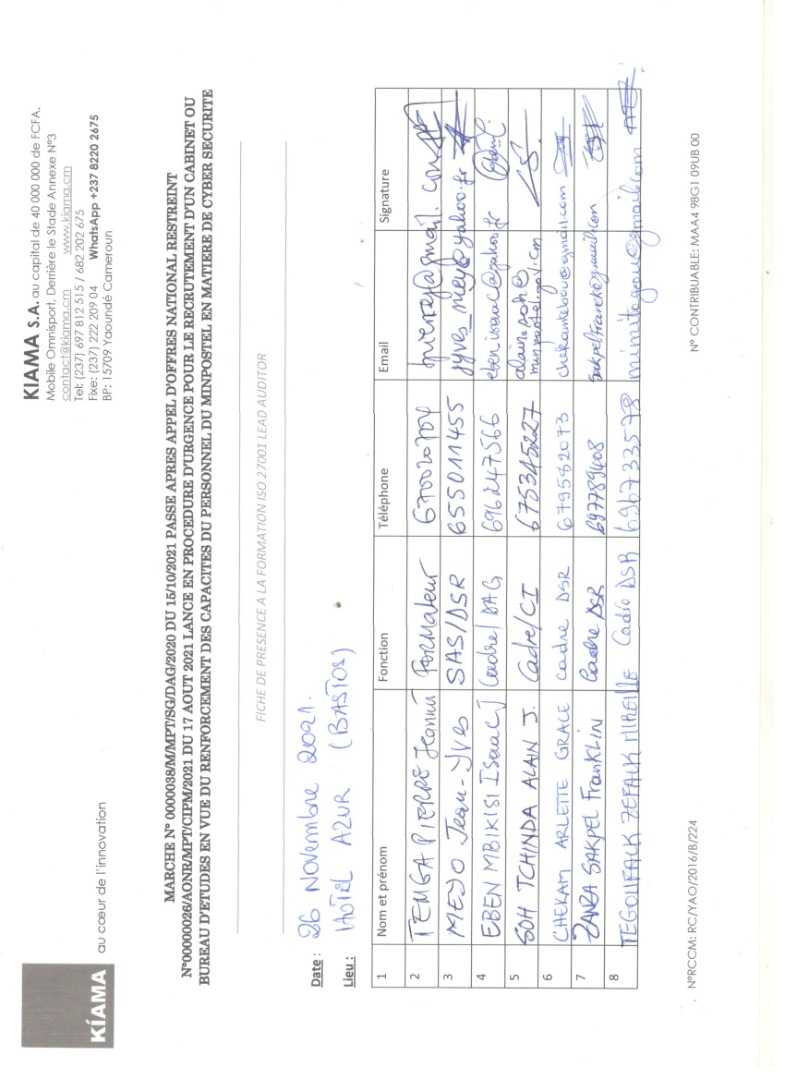 KÍAMA
au cœur de l'innovation
KIAMA S.A. au capital de 40 000 000 de FCFA.
Mobile Omnisport, Derrière le Stade Annexe N°3
contact@kiama.cm www.kiama.cm
Tel: (237) 697 812 515 / 682 202 675
Fixe: (237) 222 209 04 WhatsApp +237 8220 2675
BP: 15709 Yaoundé Cameroun
MARCHE N° 0000038/M/MPT/SG/DAG/2020 DU 15/10/2021 PASSE APRES APPEL D'OFFRES NATIONAL RESTREINT
N°00000026/AONR/MPT/CIPM/2021 DU 17 AOUT 2021 LANCE EN PROCEDURE D'URGENCE POUR LE RECRUTEMENT D'UN CABINET OU
BUREAU D'ETUDES EN VUE DU RENFORCEMENT DES CAPACITES DU PERSONNEL DU MINPOSTEL EN MATIERE DE CYBER SECURITE
FICHE DE PRESENCE A LA FORMATION ISO 27001 LEAD AUDITOR
Date : 26 Novembre 2021.
Lieu : HOTEL AZUR (BASTOS)
1 Nom et prénom Fonction Téléphone Email Signature
2 TEMGA PIERRE Jeannot Formateur 670020704
3 MEJO Jean-Yves SAS/DSR 655011455 jyves_mey@yahoo.fr
4 EBEN MBIKISI ISaac J Cadre/DAG 696247566 eben.isaac@yahoo.fr
5 SOH TCHINDA ALAIN J. Cadre/CI 675345227 alain.soh@
minpostel.gov.cm
6 CHEKAM ARLETTE GRACE cadre DSR 679582073 chekamtebou@gmail.com
7 ZANBA SAKPEL FRANKLIN Cadre DSR 697789408
8 TEGOUFALK ZEFALK MIREILLE Cadre DSR 696733578 mimitegou@gmail.com
N°RCCM: RC/YAO/2016/B/224
N° CONTRIBUABLE: MAA4 98G1 09UB 00